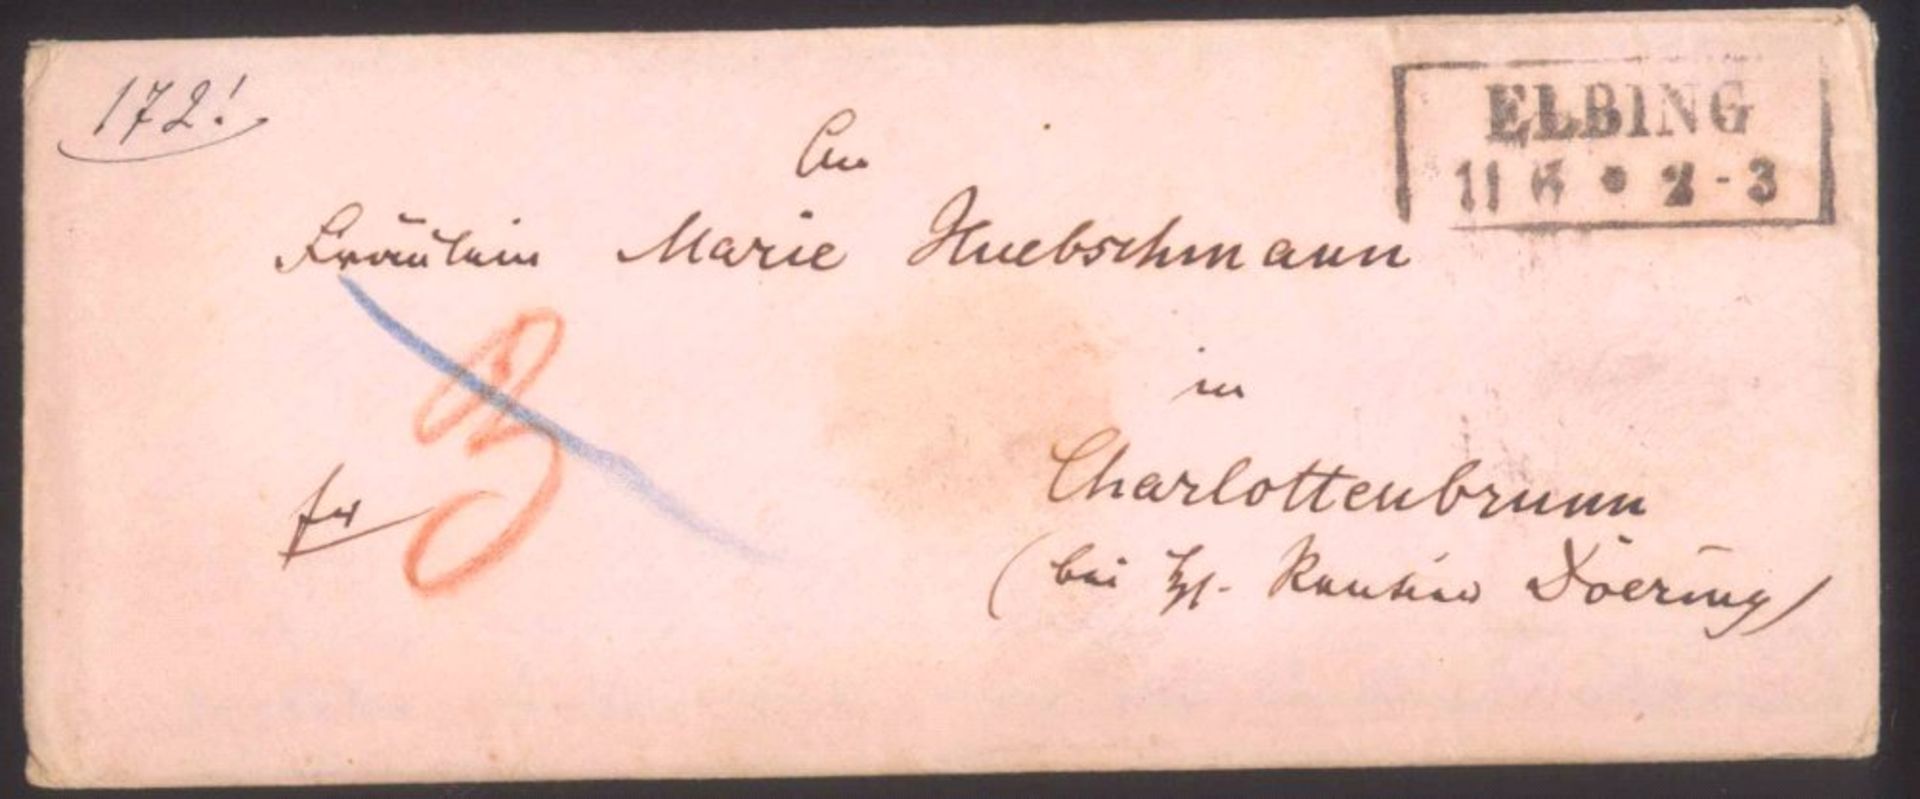 172!
ELBING
11 6 * 2-3
An
Fräulein Marie Huebschmann
in
3
fr
Charlottenbrunn
(bei Doering)